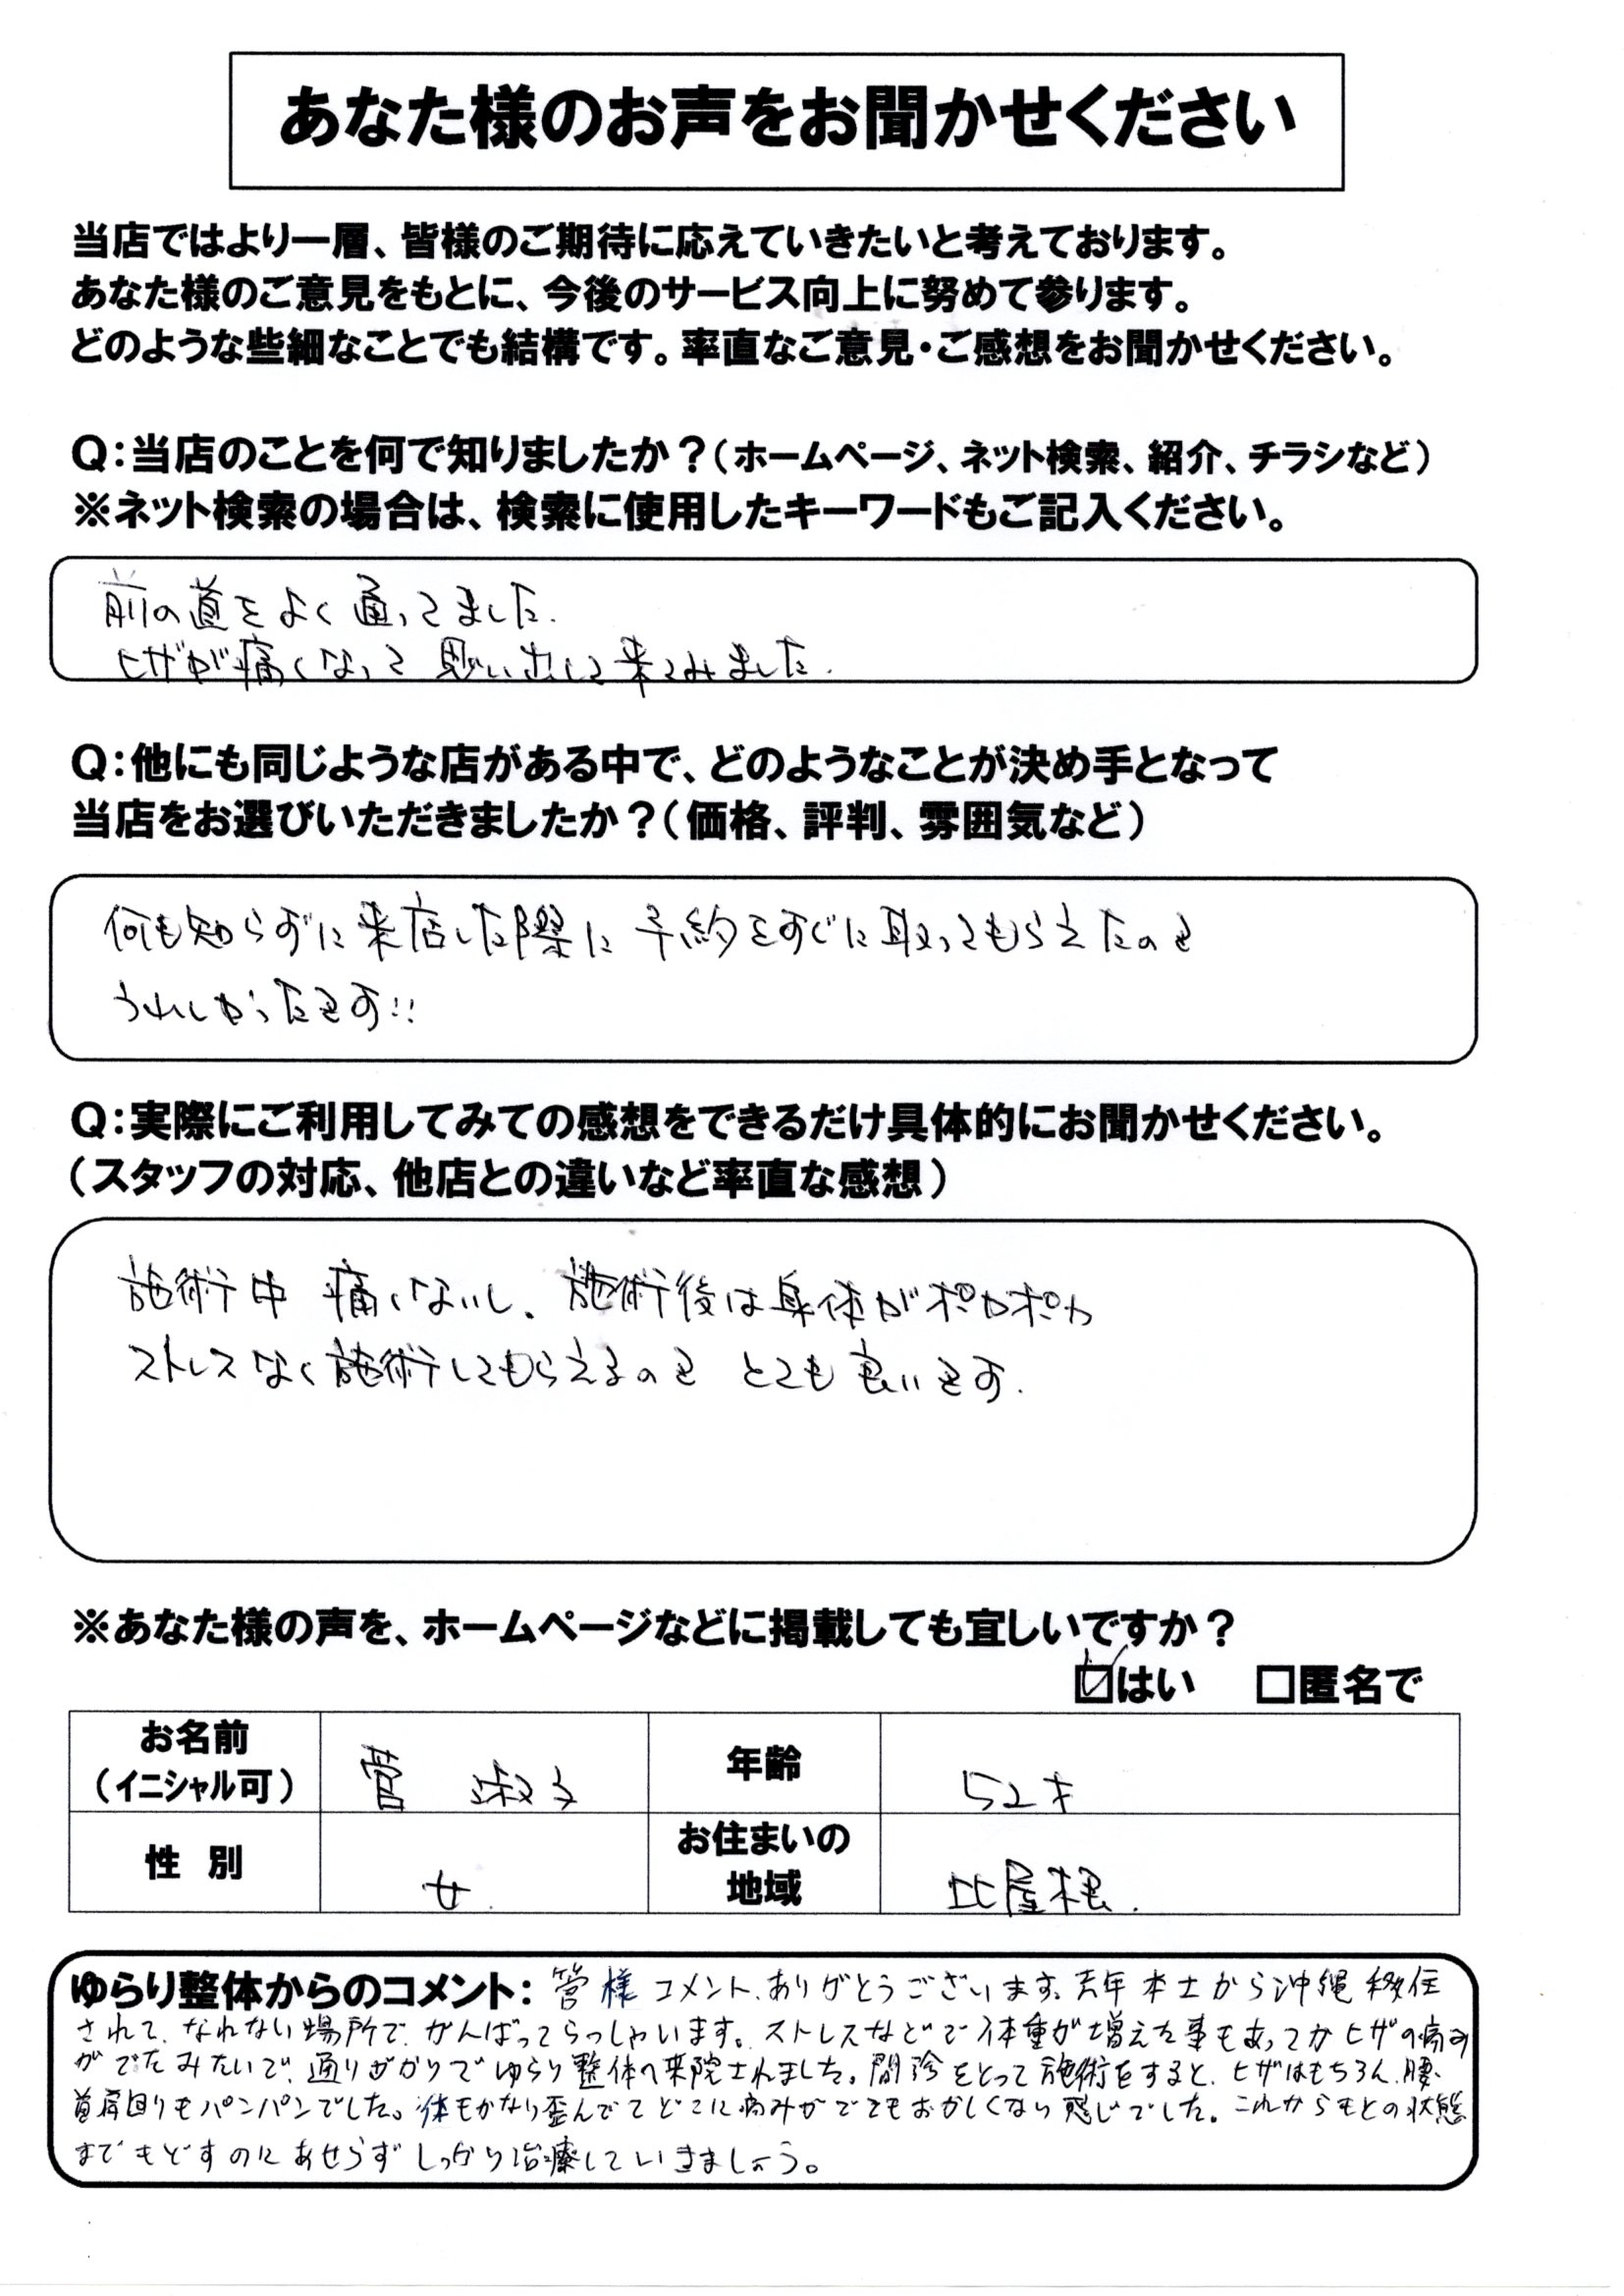 あなた様のお声をお聞かせください
当店ではより一層、皆様のご期待に応えていきたいと考えております。
あなた様のご意見をもとに、今後のサービス向上に努めて参ります。
どのような些細なことでも結構です。率直なご意見・ご感想をお聞かせください。
Q:当店のことを何で知りましたか?(ホームページ、ネット検索、紹介、チラシなど)
※ネット検索の場合は、検索に使用したキーワードもご記入ください。
前の道をよく通ってました.
ヒザが痛くなって思い出して来てみました.
Q:他にも同じような店がある中で、どのようなことが決め手となって
当店をお選びいただきましたか?(価格、評判、雰囲気など)
何も知らずに来店した際に予約をすぐに取ってもらえたので
うれしかったです!!
Q:実際にご利用してみての感想をできるだけ具体的にお聞かせください。
(スタッフの対応、他店との違いなど率直な感想)
施術中 痛くないし、施術後は身体がポカポカ
ストレスなく施術してもらえるので とても良いです.
※あなた様の声を、ホームページなどに掲載しても宜しいですか?
☑はい □匿名で
お名前
(イニシャル可)
菅 淑子
年齢
52才
性 別
女.
お住まいの
地域
比屋根.
ゆらり整体からのコメント: 菅様 コメント、ありがとうございます。去年本土から沖縄移住
されて、なれない場所で、がんばってらっしゃいます。ストレスなどで体重が増えた事もあってかヒザの痛み
がでたみたいで、通りがかりでゆらり整体へ来院されました。問診をとって施術をすると、ヒザはもちろん、腰、
首肩回りもパンパンでした。体もかなり歪んでてどこに痛みがでてもおかしくない感じでした。これからもとの状態
までもどすのにあせらずしっかり治療していきましょう。